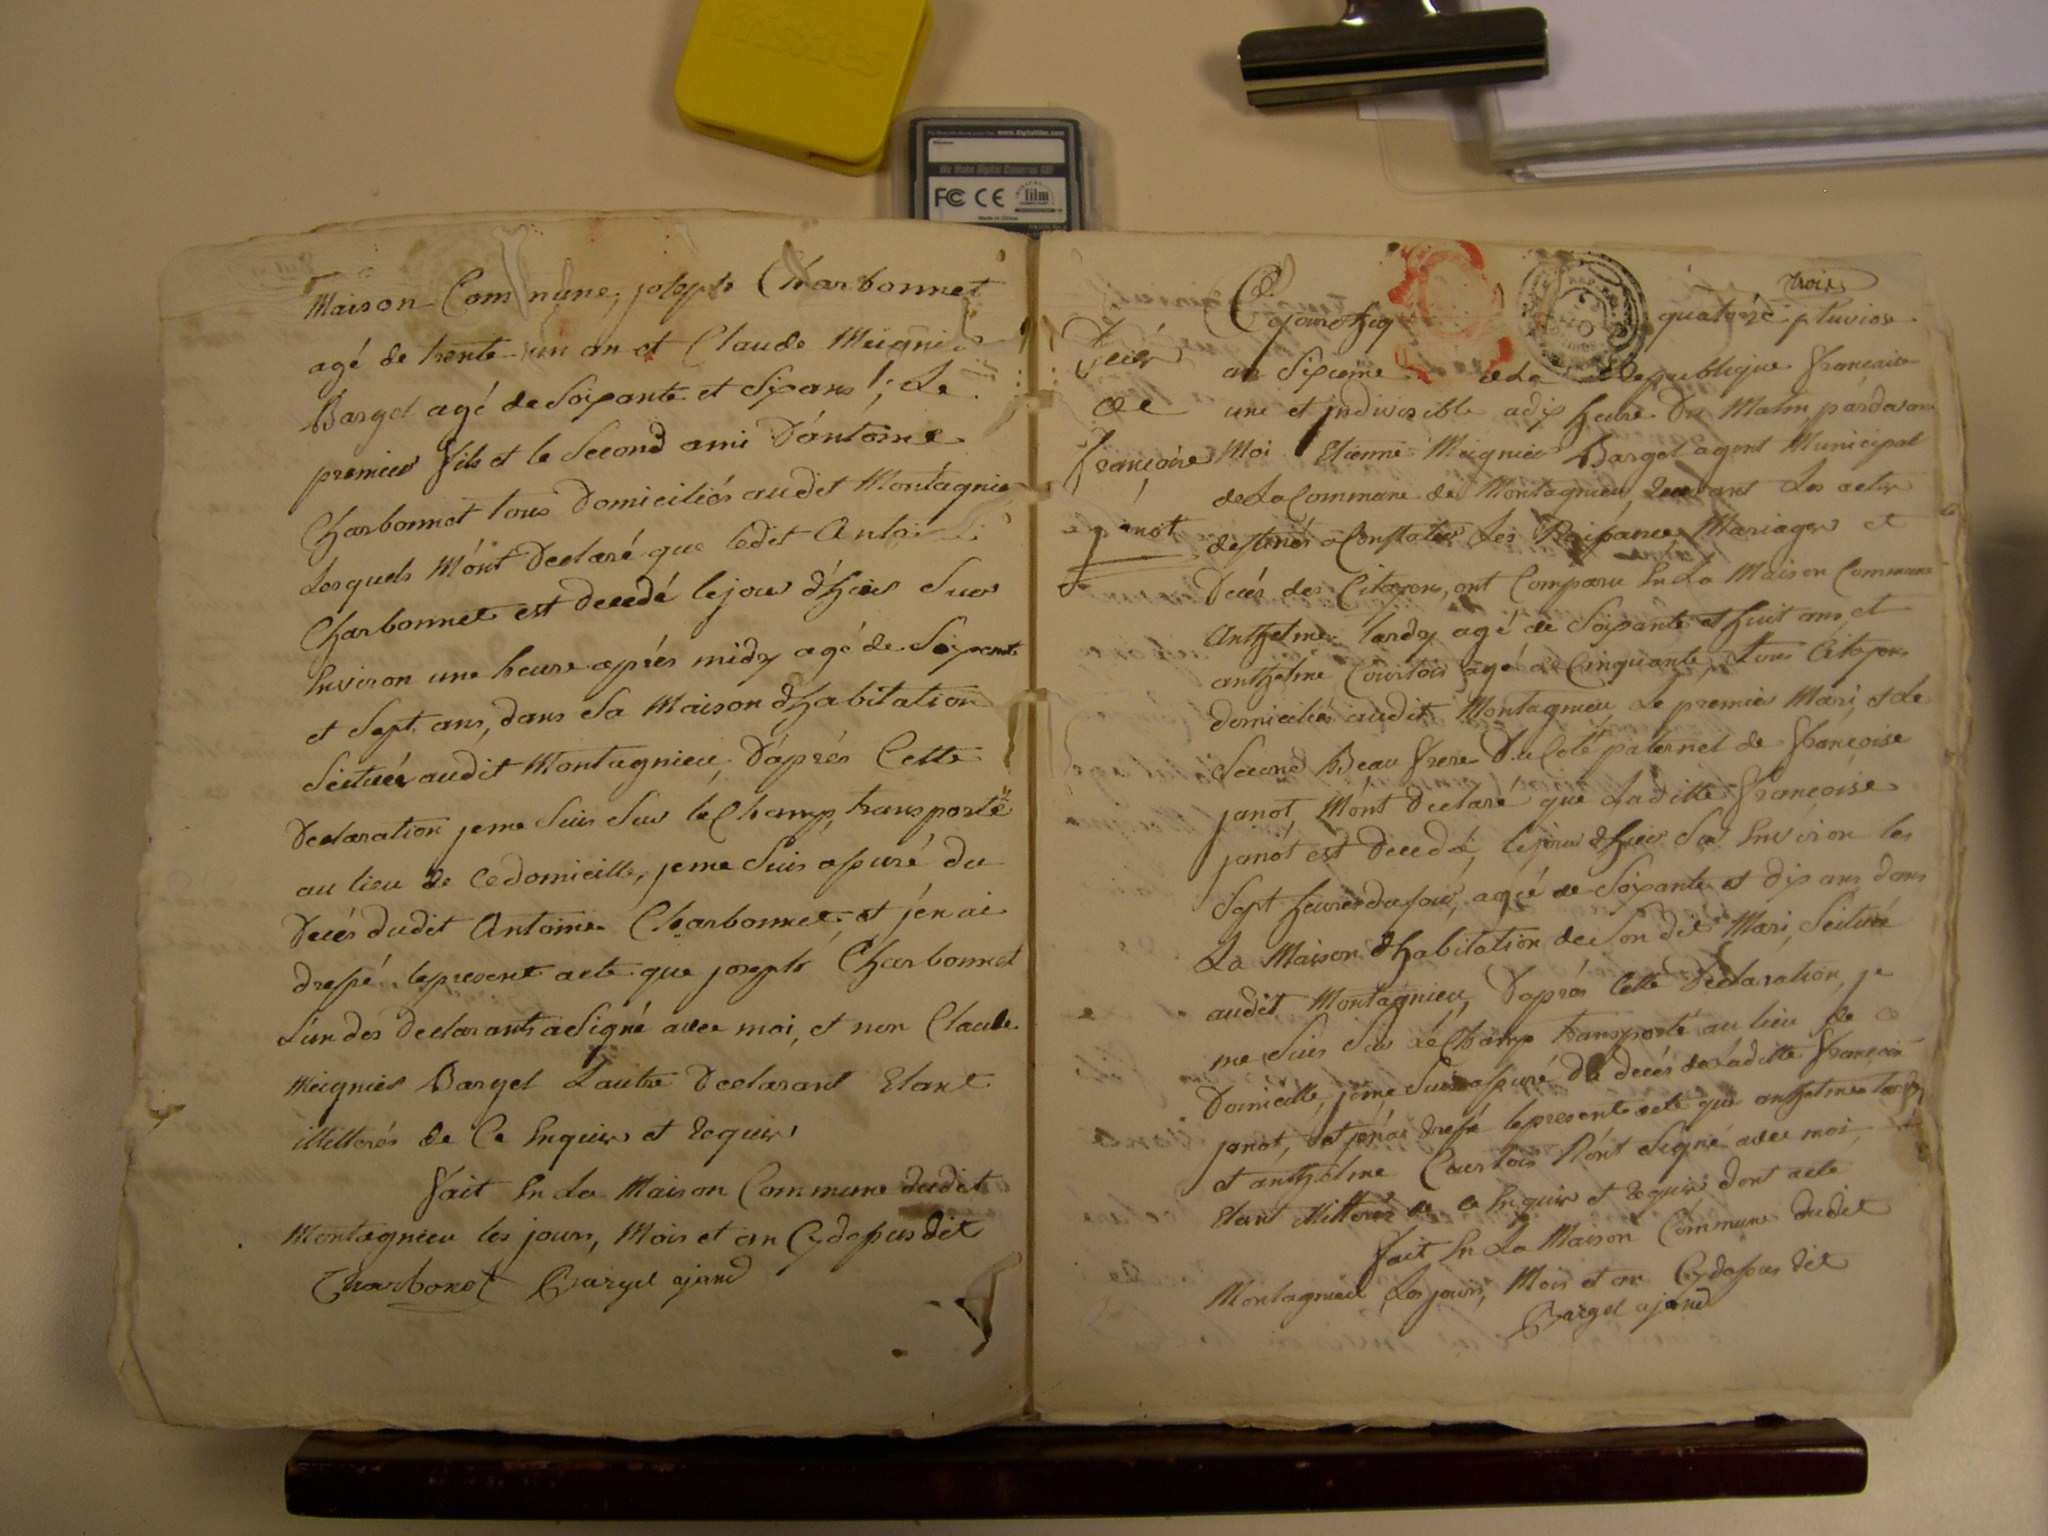 Maison Commune, joseph Charbonnet
agé de trente un an et Claude Meignier
Bargel agé de Soixante et Six ans, Le
premier fils et le Second ami D'antoine
Charbonnet tous Domiciliés audit Montagnieu
Lesquels M'ont Declaré que ledit Antoine
Charbonnet est decedé le jour d'hier Sur
Environ une heure aprés midy agé de Soixante
et Sept ans, dans Sa Maison d'habitation
Seituée audit Montagnieu, D'aprés Cette
Declaration je me Suis Sur le Champ transporté
au lieu de Ce domicille, je me Suis assuré du
Decés dudit Antoine Charbonnet, et j'en ai
dressé le present acte que joseph Charbonnet
L'un des declarants a Signé avec moi, et non Claude
Meignier Bargel L'autre Declarant Etant
illitterés de Ce Enquis et Requis
Fait En La Maison Commune dudit
Montagnieu les jours, Mois et an Cy dessus dit
Charbonet Bargel ajand
trois
Cejourd'huy quatorze pluviose
an Sixieme de La Republique francaise
une et indivisible a dix heure Du Matin pardevant
Moi Etienne Meignier Bargel agent Municipal
de La Commune de Montagnieu, Recevant Les actes
destinés a Constater Les Naissances Mariages et
Decés des Citoyens, ont Comparu En La Maison Commune
Anthelme tardy agé de Soixante et huit ans, et
anthelme Courtois agé de Cinquante, tous Citoyens
domiciliés audit Montagnieu Le premier Mari, et Le
Second Beau frere Du Coté paternel de Françoise
janot, M'ont declaré que Laditte Françoise
janot est Decedé, le jour d'hier Sur Environ les
Sept heures du soir, agée de Soixante et dix ans dans
La Maison d'habitation de Son dit Mari, Seituée
audit Montagnieu, D'aprés Cette Declaration, je
me Suis Sur Le Champ transporté au lieu de Ce
Domicille, je me Suis assuré du decés de Laditte Françoise
janot, et j'en ai dressé le present acte que anthelme tardy
et anthelme Courtois N'ont Signé avec moi
Etant illitterés de Ce Enquis et Requis dont acte
Fait En La Maison Commune dudit
Montagnieu Les jours, Mois et an Cy dessus dit
Bargel ajand
Decés
de
Françoise
janot
www.digitalfilm.com
We Make Digital Cameras GO!
FC CE
film
Made in China